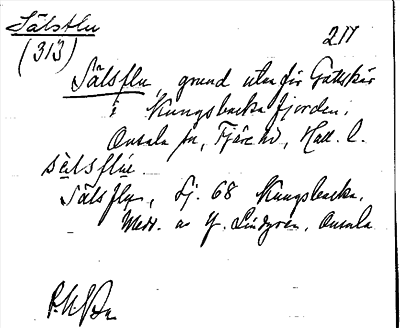 Sälsflu
(313)
217
Sälsflu, grund utanför Gottskär
i Kungsbacka fjorden,
Onsala sn, Fjäre hd, Hall. l.
sèlsflúe
Sälsflu, Sj. 68 Kungsbacka.
Medd. av J. Lindgren, Onsala